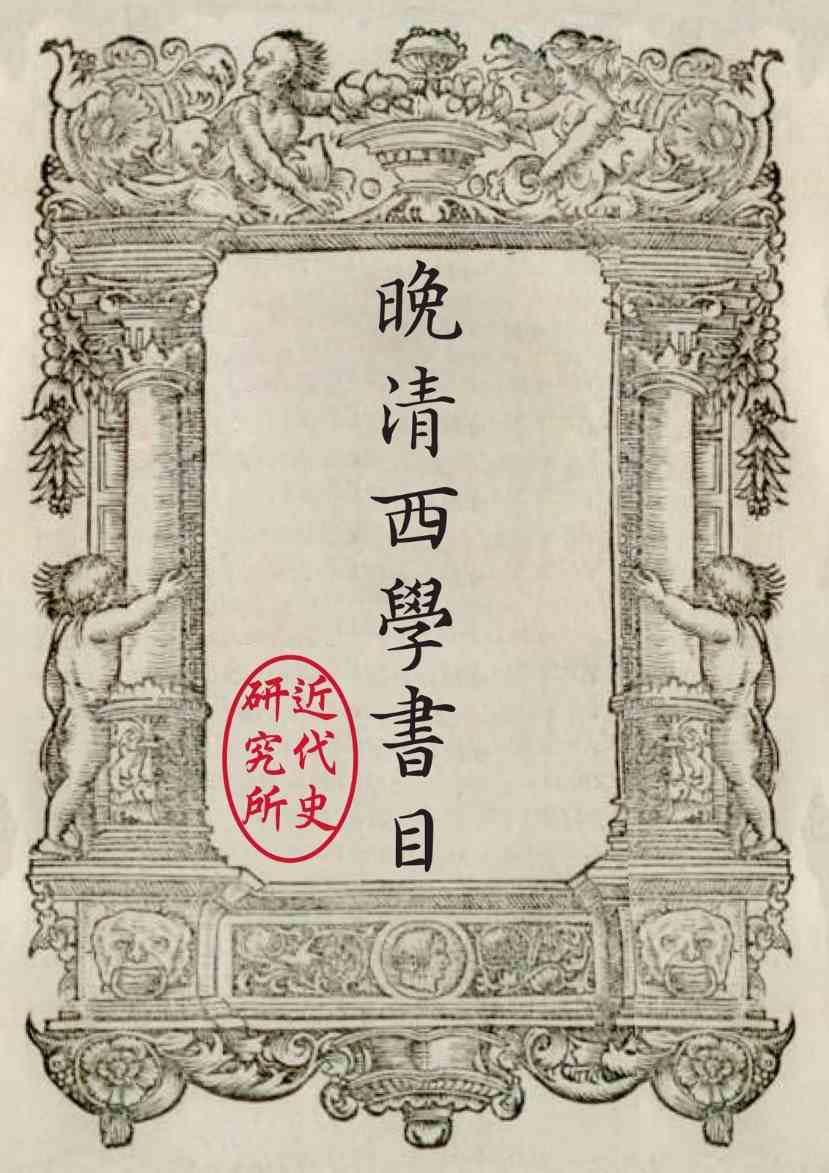 晚清西學書目
近代史
研究所